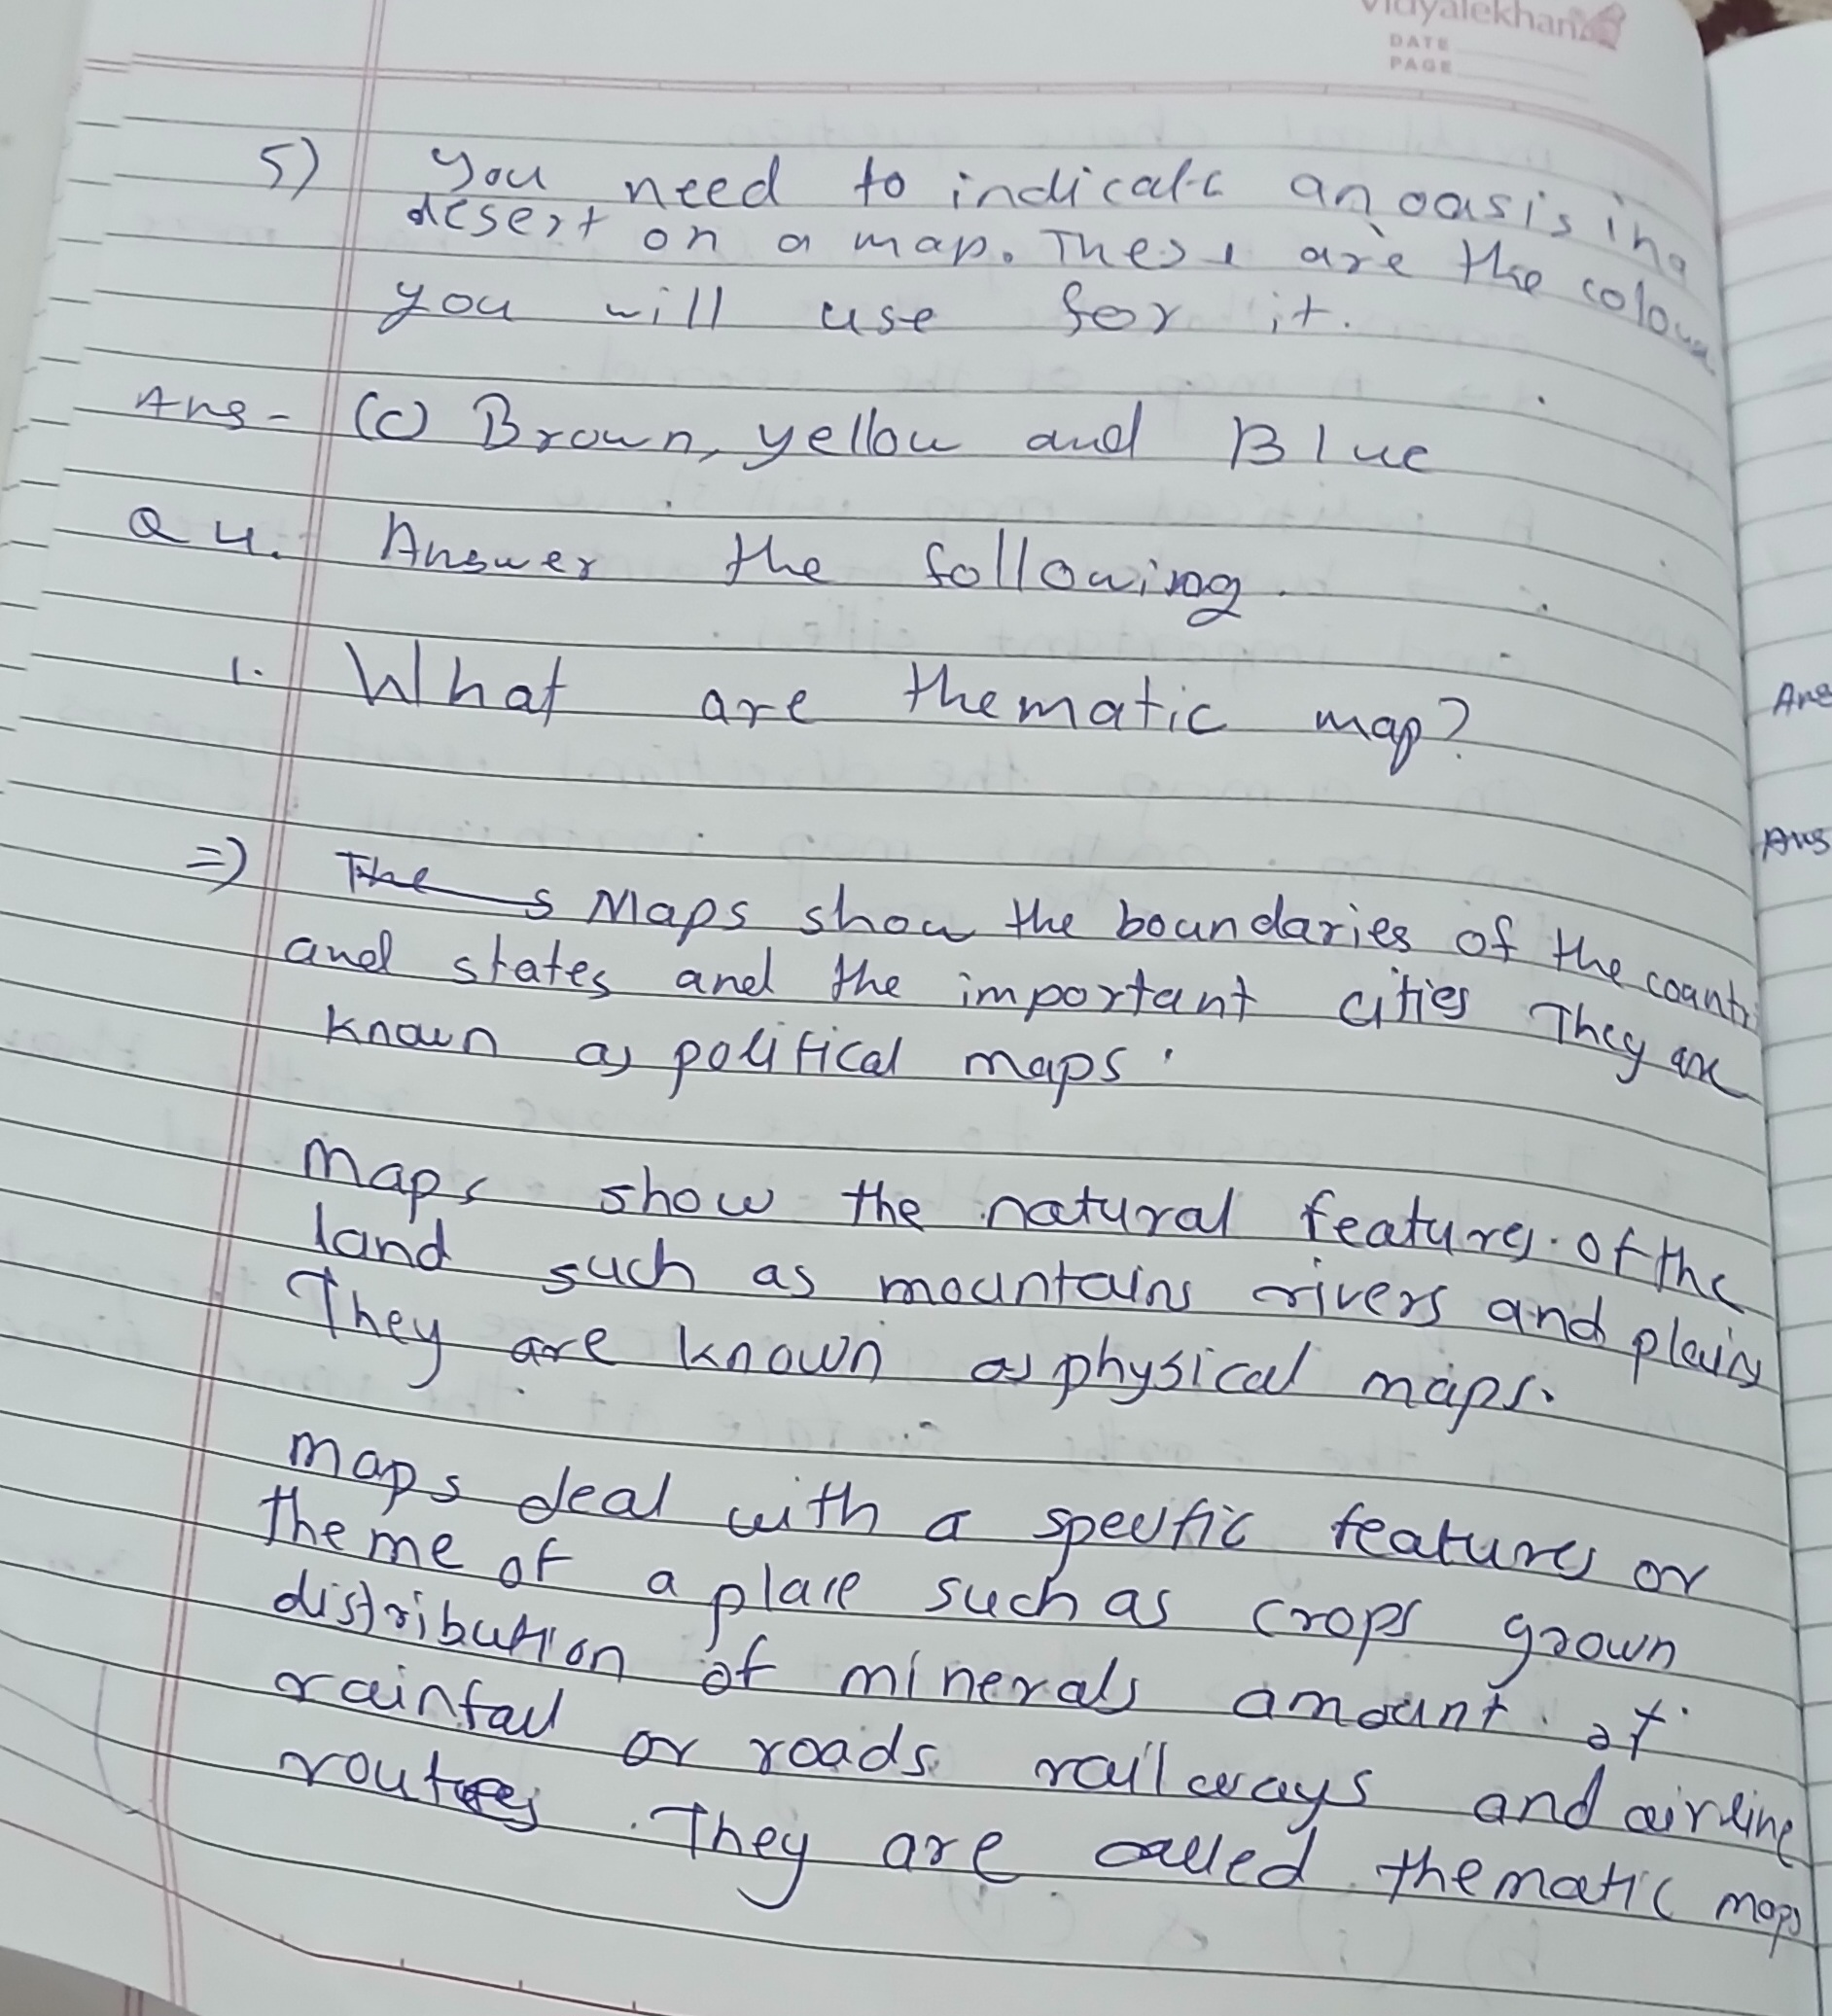 Vidyalekhan
DATE
PAGE
5) You need to indicate an oasis in a
desert on a map. These are the colour
you will use for it.
Ans - (c) Brown, yellow and Blue
Q 4. Answer the following.
1. What are thematic map?
=) The s Maps show the boundaries of the countr
and states and the important cities They are
known as political maps.
Maps show the natural features of the
land such as mountains rivers and plains
They are known as physical maps.
Maps deal with a specific features or
theme of a place such as crops grown
distribution of minerals amount of
rainfall or roads railways and airline
routes. They are called thematic maps
Ans
Ans